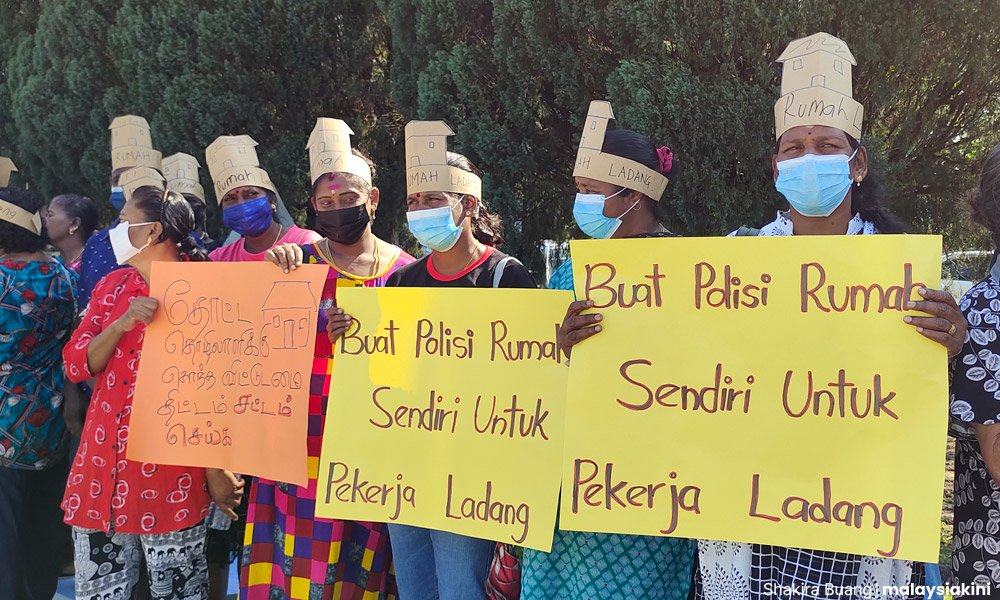 Rumah
Rumah
RUMAH
LADANG
LADANG
Rumah L
தோட்ட
தொழிலாளிக்கு
சொந்த வீட்டுடமை
திட்டம் சட்டம்
செய்க
Buat Polisi Rumah
Sendiri Untuk
Pekerja Ladang
Buat Polisi Rumah
Sendiri Untuk
Pekerja Ladang
Shakira Buang | malaysiakini